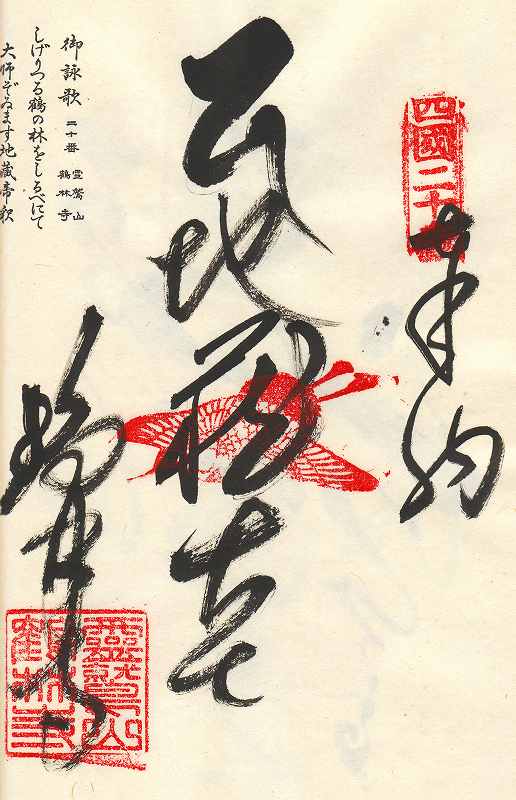 四國二十番
奉納
地蔵大士
鶴林寺
靈鷲山
鶴林寺
御詠歌 二十番 霊鷲山 鶴林寺
しげりつる鶴の林をしるべにて
大師ぞゐます地蔵帝釈